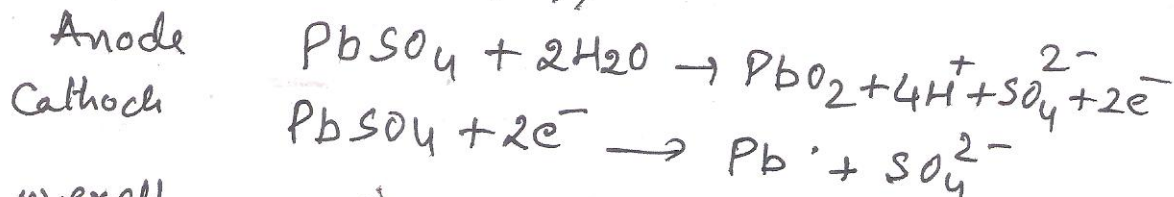 Anode PbSO₄ + 2H2O → PbO₂ + 4H⁺ + SO₄²⁻ + 2e⁻
Cathoch PbSO₄ + 2e⁻ → Pb + SO₄²⁻